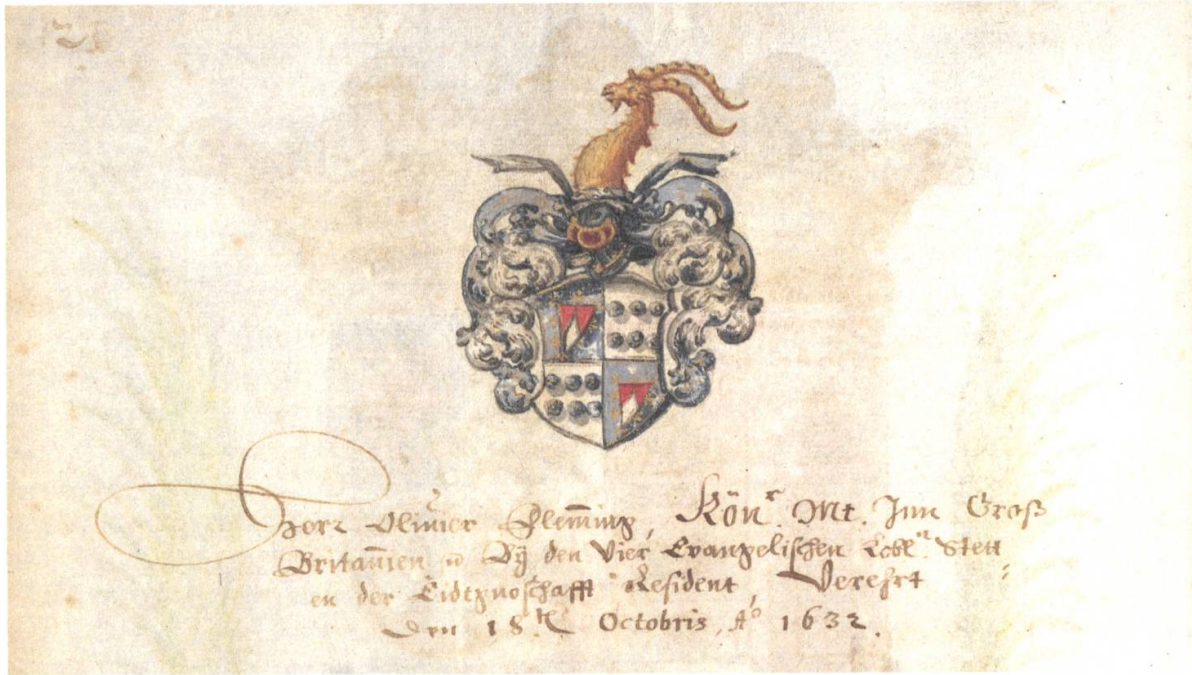 Herr Olivier Flem̄ing, Kön.r Mt. Inn Groß
Britan̄ien Bÿ den Vier Evangelischen Lobl.n Stett
en der Eidtgnoschafft Resident, Verehrt
Den 18.t Octobris, Aº 1632.